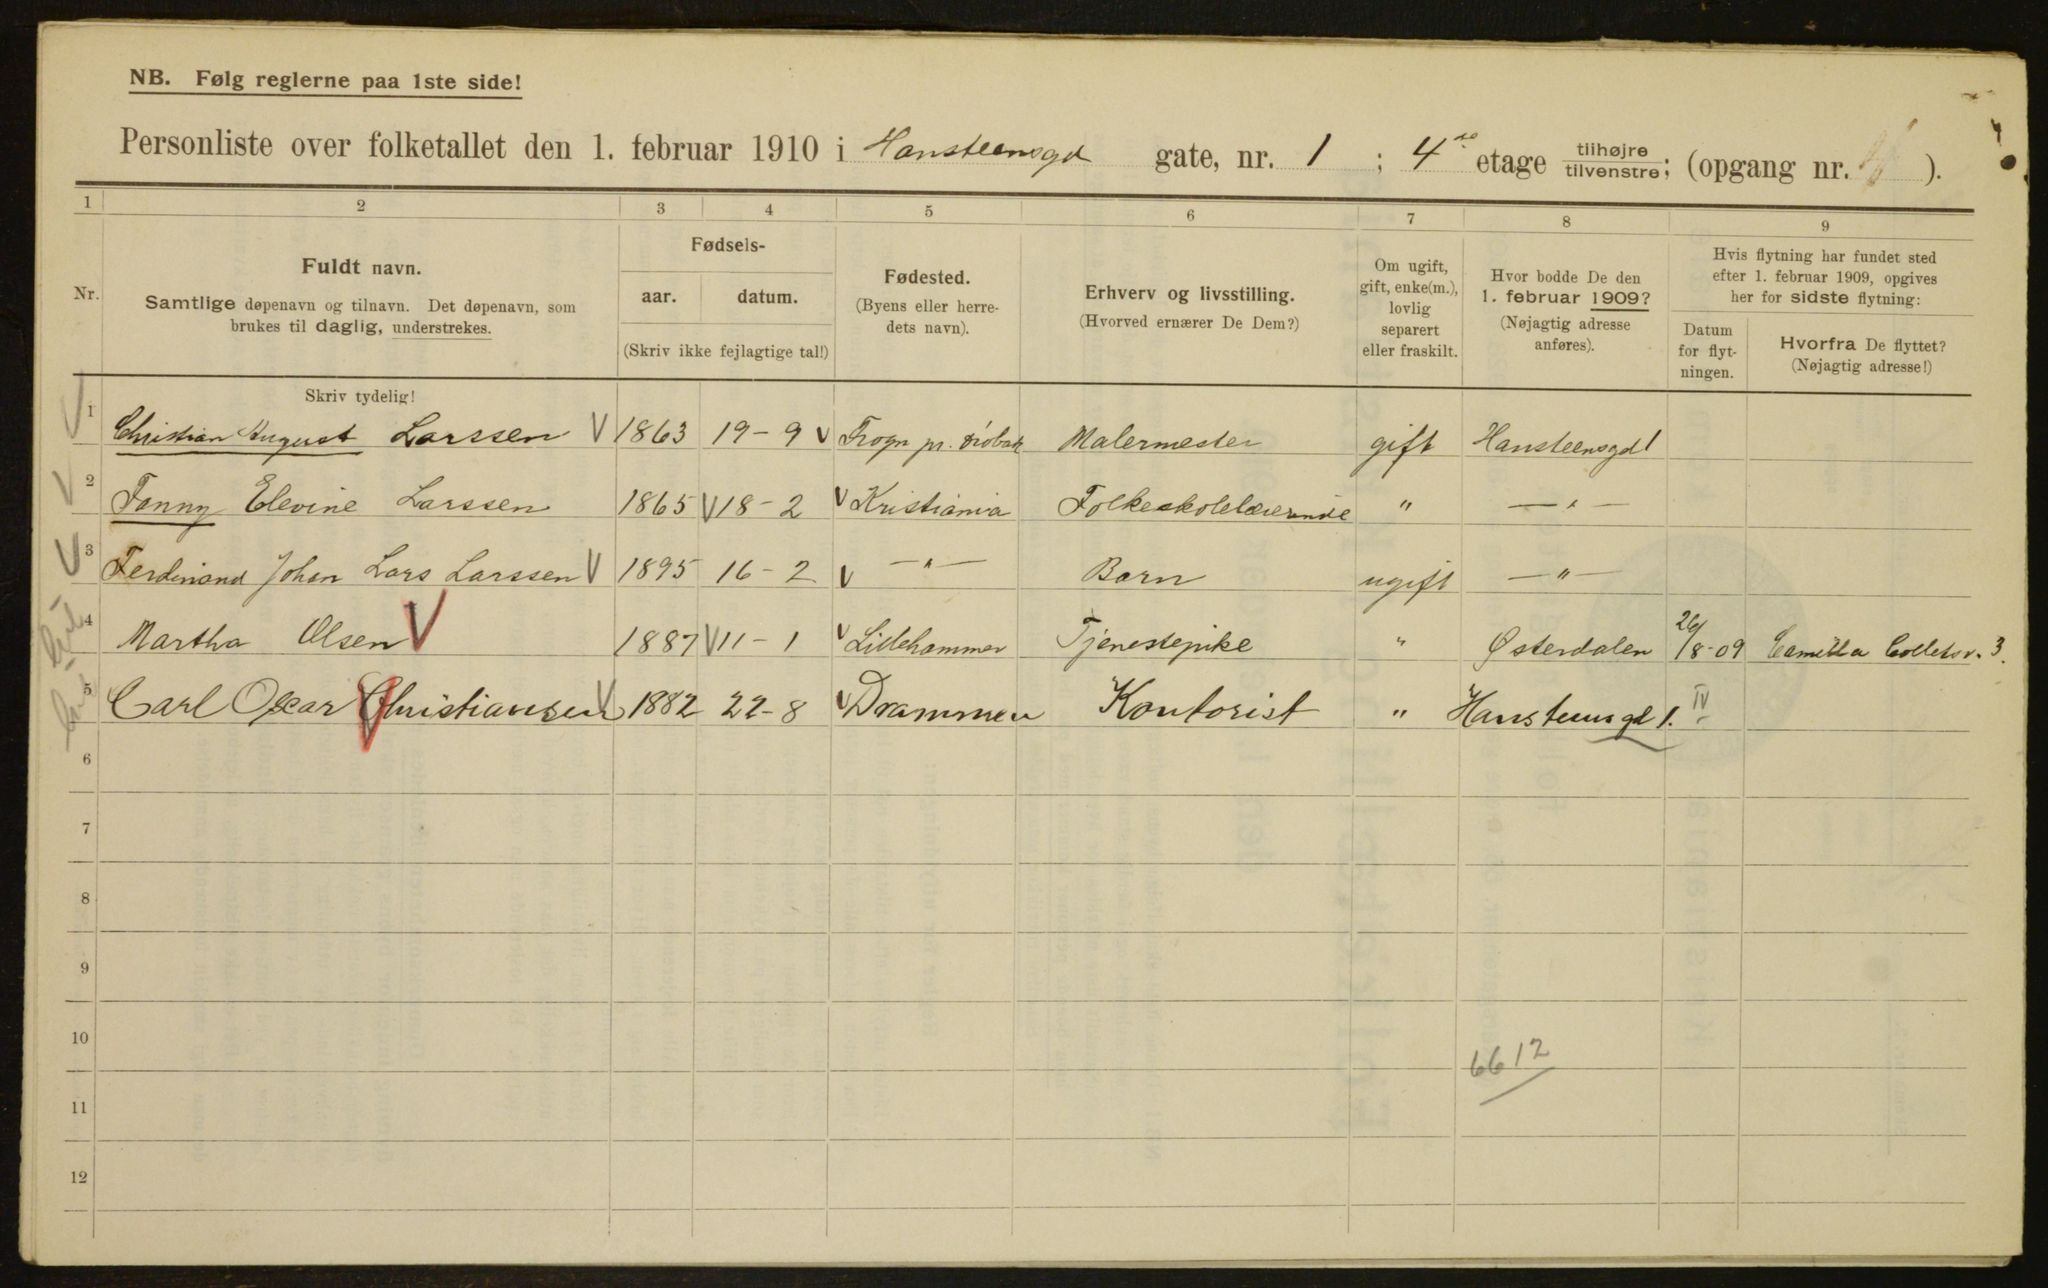 NB. Følg reglerne paa 1ste side!
Personliste over folketallet den 1. februar 1910 i Hansteensgd gate, nr. 1 ; 4de etage tilhøjre/tilvenstre; (opgang nr. ).
1 2 3 4 5 6 7 8 9
Nr.
Fuldt navn.
Samtlige døpenavn og tilnavn. Det døpenavn, som
brukes til daglig, understrekes.
Fødsels-
aar. datum.
(Skriv ikke fejlagtige tal!)
Fødested.
(Byens eller herre-
dets navn).
Erhverv og livsstilling.
(Hvorved ernærer De Dem?)
Om ugift,
gift, enke(m.),
lovlig
separert
eller fraskilt.
Hvor bodde De den
1. februar 1909?
(Nøjagtig adresse
anføres).
Hvis flytning har fundet sted
efter 1. februar 1909, opgives
her for sidste flytning:
Datum
for flyt-
ningen.
Hvorfra De flyttet?
(Nøjagtig adresse!)
Skriv tydelig!
1 Christian August Larssen V 1863 19-9 V Frogn pr. Drøbak Malermester gift Hansteensgd 1
2 Fanny Elevine Larssen 1865 V 18-2 V Kristiania Folkeskolelærerinde " — " —
3 Ferdinand Johan Lars Larssen V 1895 16-2 V — " — Barn ugift — " —
4 Martha Olsen V 1887 V 11-1 V Lillehammer Tjenestepike " Østerdalen 26/8-09 Camilla Colletsv. 3.
5 Carl Oscar Christiansen V 1882 22-8 V Drammen Kontorist " Hansteensgd 1. IV
6
7
8
9
10
6612
11
12